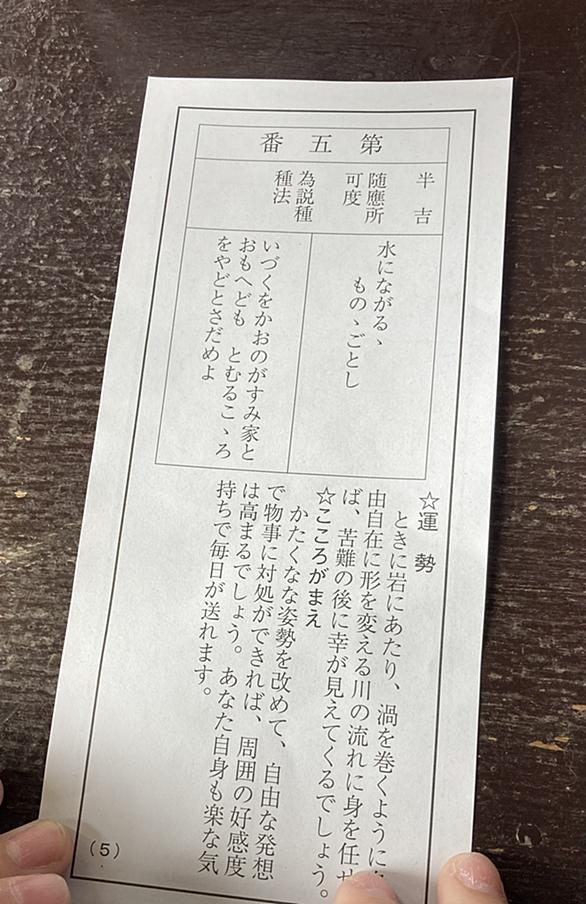 第五番
半吉
随應所
可度
為説種
種法
水にながるゝ
ものゝごとし
いづくをかおのがすみ家と
おもへども とむるこゝろ
をやどとさだめよ
☆運勢
ときに岩にあたり、渦を巻くように
由自在に形を変える川の流れに身を任せ
ば、苦難の後に幸が見えてくるでしょう。
☆こころがまえ
かたくなな姿勢を改めて、自由な発想
で物事に対処ができれば、周囲の好感度
は高まるでしょう。あなた自身も楽な気
持ちで毎日が送れます。
(5)